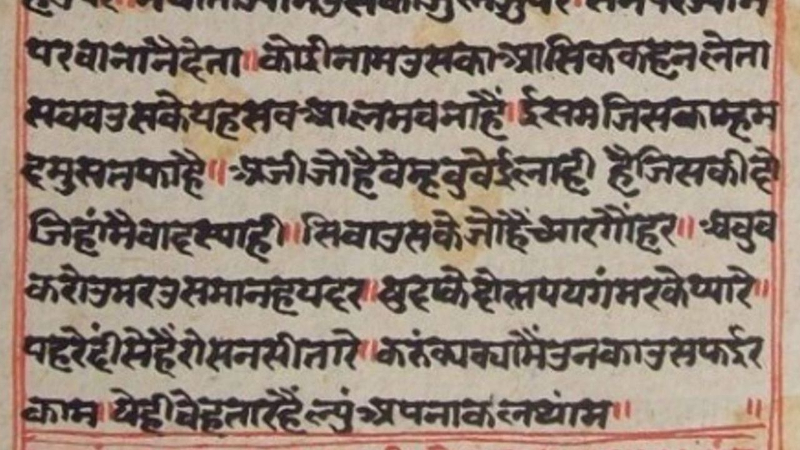 परवानानैदेता॥कोईनामउसकाआसिककहनलेता
सववउसकेयहसवआलमवनाहैं।ईसमजिसकामहम
दमुसतफाहै॥अजीजोहैवेमहवुवेईलाही हैजिसकीदो
जिहांमैवादस्याही॥सिवाउसकेजोहैंच्यारगौंहर॥अवुव
करोउमरउसमानहयदर॥षुदाकेदोस्तपयगंमरकेप्यारे॥
पहरेदींसेहैंरोसनसीतारे॥करुंक्याक्यामैंउनकाउसफईर
काम।येहीवेहतारहैंल्युंअपनाकलथांम॥ ॥